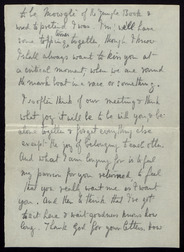 to be Mowgli of the Jungle Book &
used to pretend I was. You'll have
some to
together though I know
I shall always want to kiss you at
a critical moment when we are round
the mark boat in a race or something.
I so often think of our meeting & think
what joy it will be to be with you & be
alone together & forget everything else
except the joy of belonging to each other.
And what I am longing for is to feel
my passion for you returned & feel
that you really want me as I want
you. And then to think that I've got
to sit here & wait goodness knows how
long. Thank God for your letters now